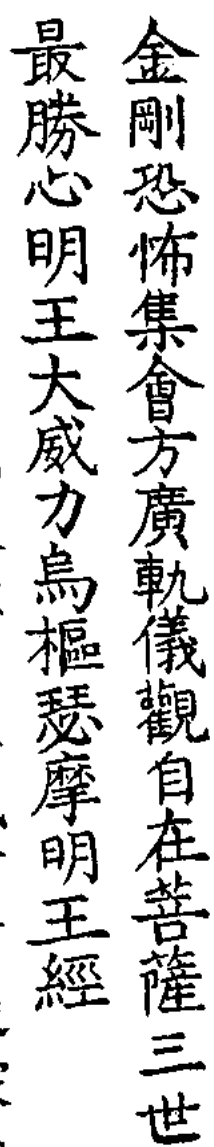 金剛恐怖集會方廣軌儀觀自在菩薩三世
最勝心明王大威力烏樞瑟摩明王經